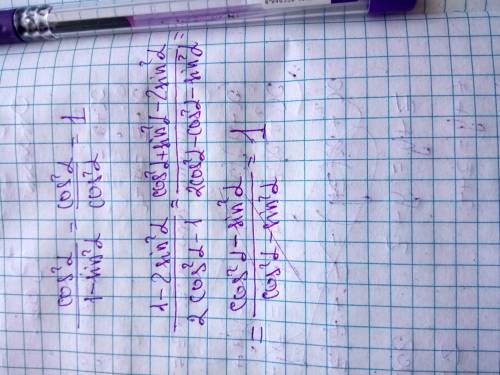 cos²α / 1-sin²α = cos²α / cos²α = 1
1-2sin²α / 2cos²α-1 = cos²α+sin²α-2sin²α / 2cos²α-cos²α-sin²α =
= cos²α-sin²α / cos²α-sin²α = 1